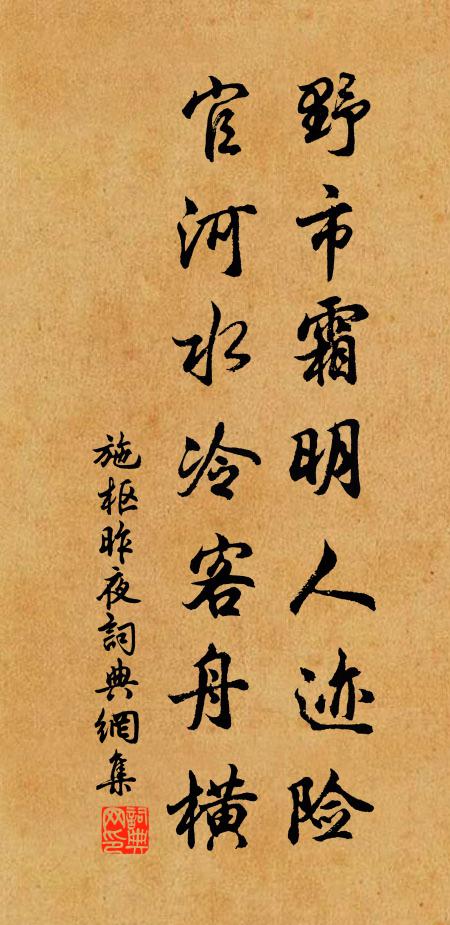 野市霜明人迹险
官河水冷客舟横
施枢昨夜詞典網集
詞典网印